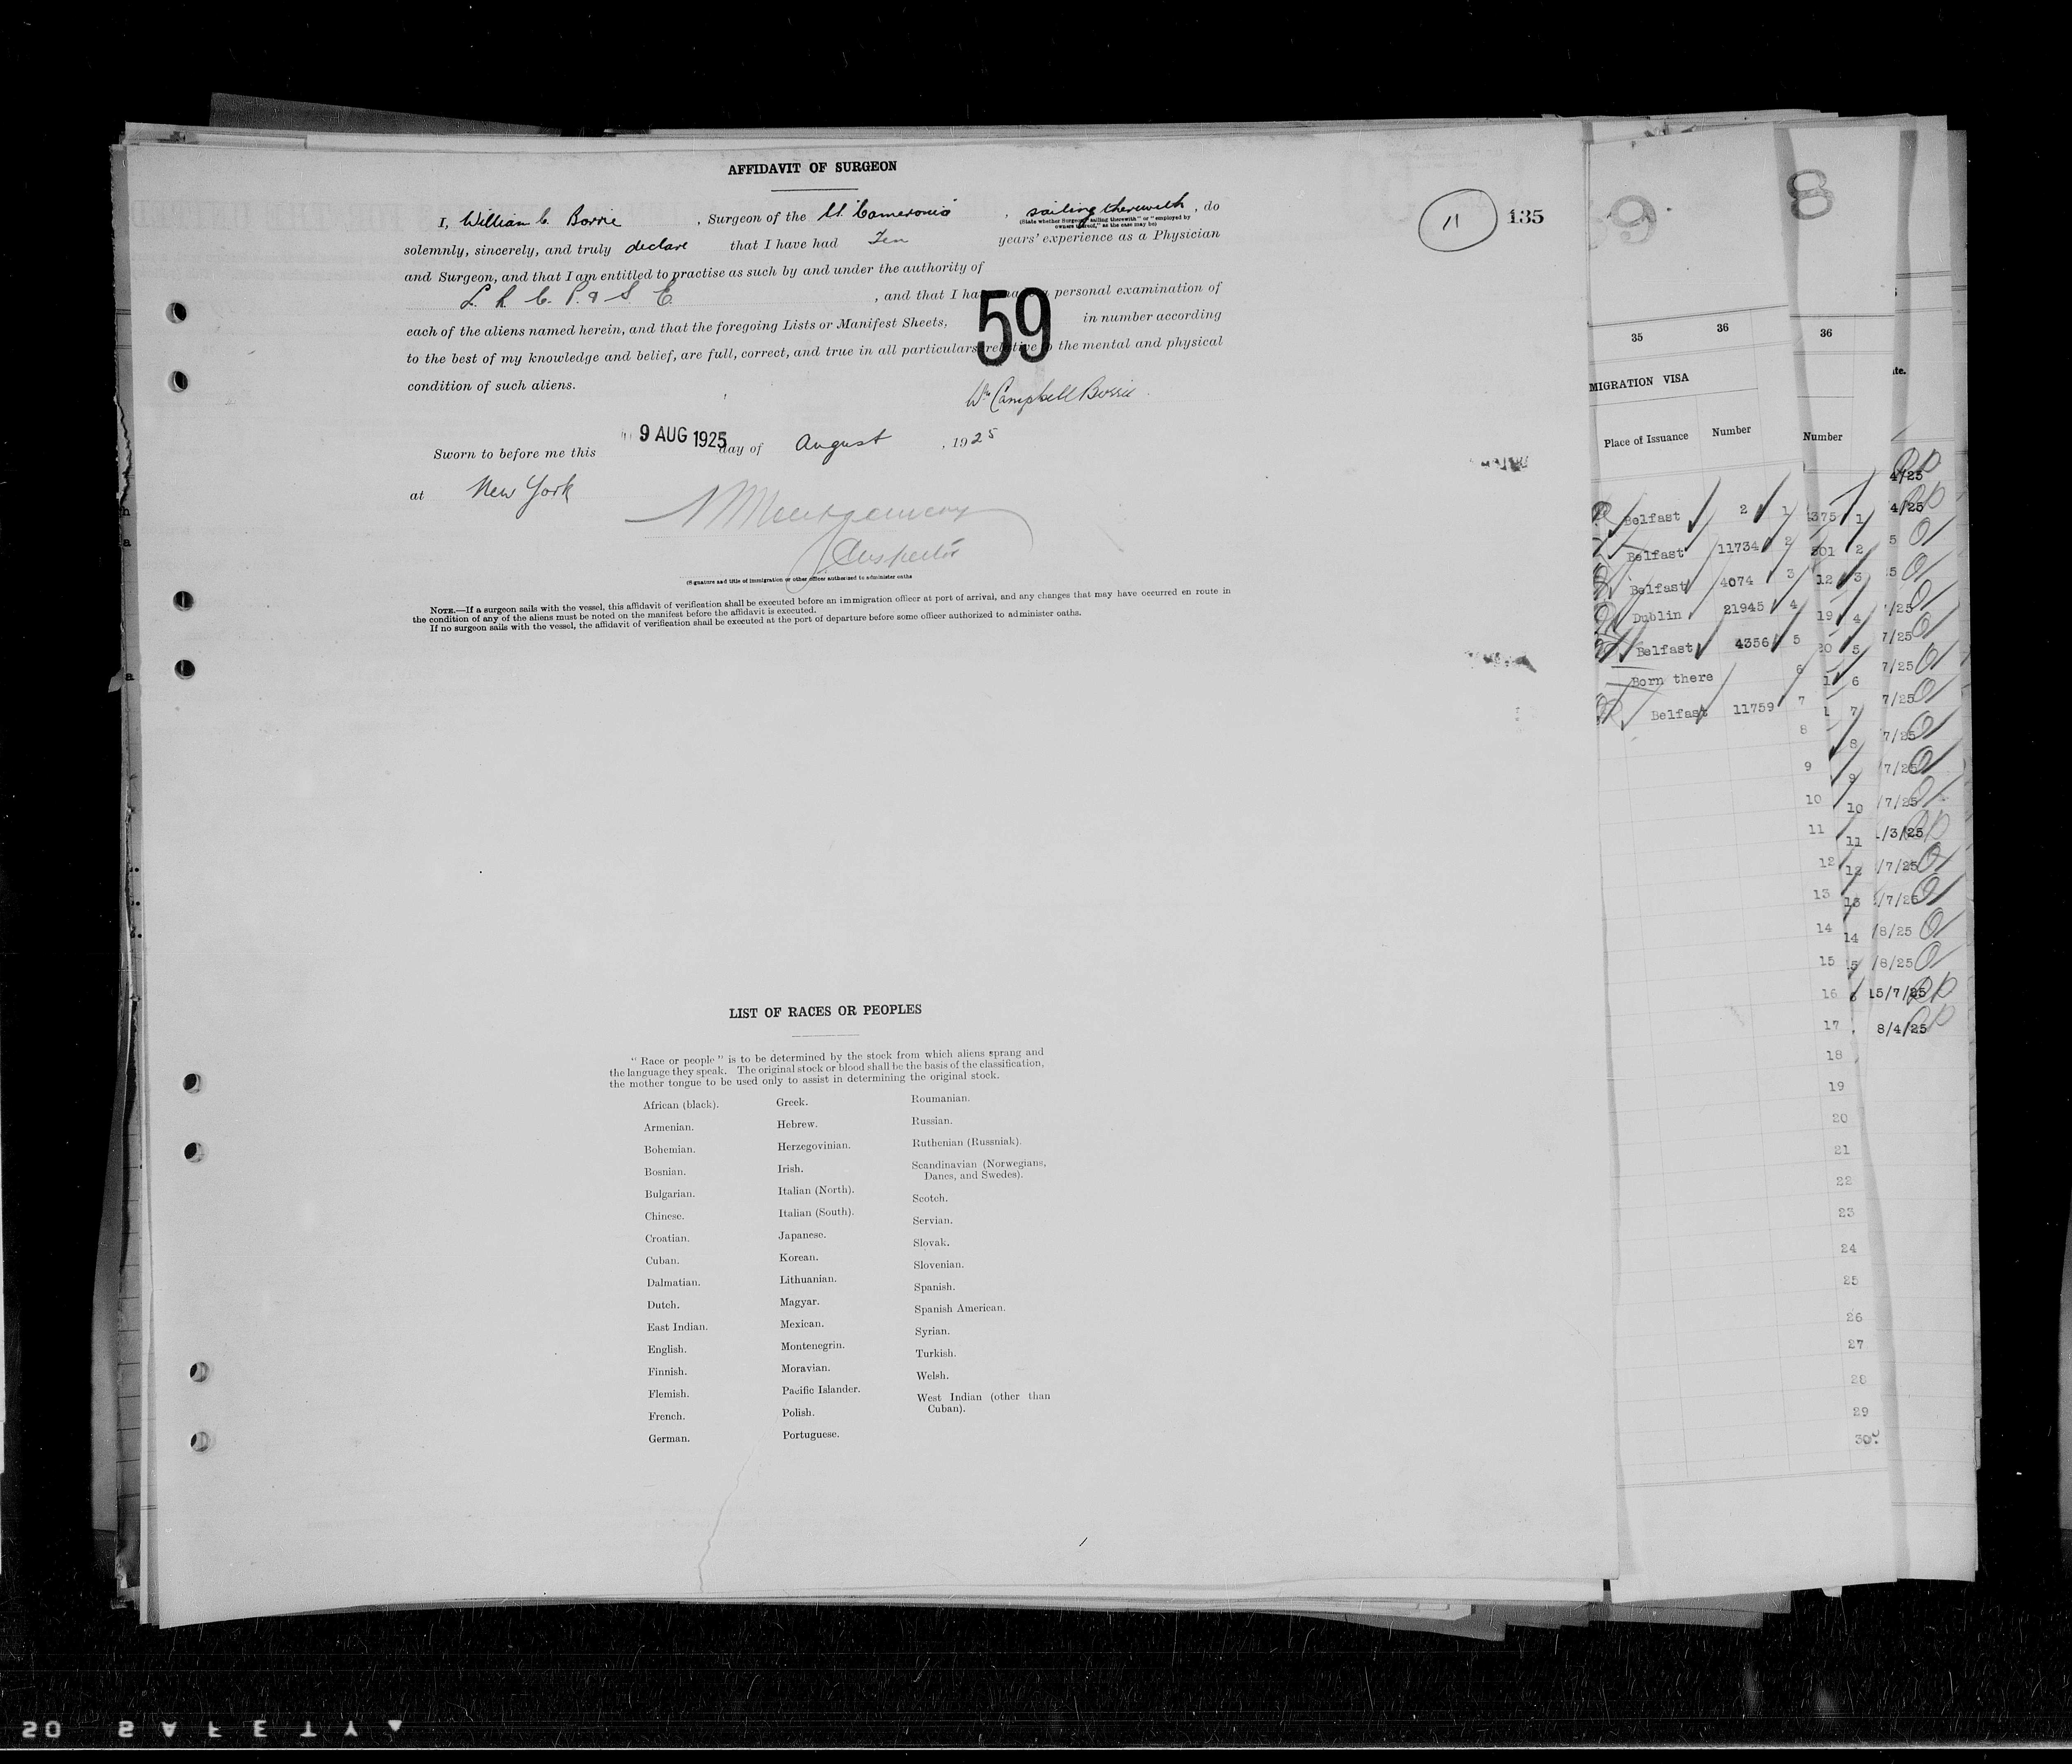 AFFIDAVIT OF SURGEON
I, William C. Borrie, Surgeon of the SS "Cameronia", sailing therewith, do
(State whether Surgeon "sailing therewith" or "employed by
owners thereof," as the case may be)
solemnly, sincerely, and truly declare that I have had Ten years' experience as a Physician
and Surgeon, and that I am entitled to practise as such by and under the authority of
L. R. C. P. & S. E., and that I have made a personal examination of
each of the aliens named herein, and that the foregoing Lists or Manifest Sheets, 59 in number according
to the best of my knowledge and belief, are full, correct, and true in all particulars relative to the mental and physical
condition of such aliens.
Wm Campbell Borrie
Sworn to before me this 9 AUG 1925 day of August, 1925
at New York
Montgomery
Inspector
(Signature and title of immigration or other officer authorized to administer oaths
NOTE.—If a surgeon sails with the vessel, this affidavit of verification shall be executed before an immigration officer at port of arrival, and any changes that may have occurred en route in
the condition of any of the aliens must be noted on the manifest before the affidavit is executed.
If no surgeon sails with the vessel, the affidavit of verification shall be executed at the port of departure before some officer authorized to administer oaths.
11
135
LIST OF RACES OR PEOPLES
"Race or people" is to be determined by the stock from which aliens sprang and
the language they speak. The original stock or blood shall be the basis of the classification,
the mother tongue to be used only to assist in determining the original stock.
African (black).
Armenian.
Bohemian.
Bosnian.
Bulgarian.
Chinese.
Croatian.
Cuban.
Dalmatian.
Dutch.
East Indian.
English.
Finnish.
Flemish.
French.
German.
Greek.
Hebrew.
Herzegovinian.
Irish.
Italian (North).
Italian (South).
Japanese.
Korean.
Lithuanian.
Magyar.
Mexican.
Montenegrin.
Moravian.
Pacific Islander.
Polish.
Portuguese.
Roumanian.
Russian.
Ruthenian (Russniak).
Scandinavian (Norwegians,
Danes, and Swedes).
Scotch.
Servian.
Slovak.
Slovenian.
Spanish.
Spanish American.
Syrian.
Turkish.
Welsh.
West Indian (other than
Cuban).
9
35 36
MIGRATION VISA
Place of Issuance Number
Belfast 2 1
Belfast 11734 2
Belfast 4074 3
Dublin 21945 4
Belfast 4356 5
Born there 6
Belfast 11759 7
8
9
10
11
12
13
14
15
16
17
18
19
20
21
22
23
24
25
26
27
28
29
30
8
36
Number
375 1
301 2
12 3
19 4
20 5
1 6
1 7
8
9
10
11
12
13
14
5
ate.
4/25
4/25
5
5
/25
7/25
7/25
7/25
7/25
/7/25
/7/25
/3/25
/7/25
/7/25
/8/25
/8/25
15/7/25
8/4/25
SAFETY